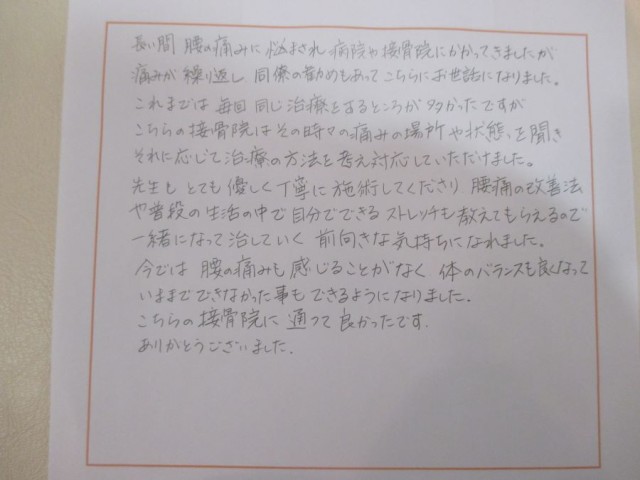 長い間 腰の痛みに悩まされ 病院や接骨院にかかってきましたが
痛みが繰り返し 同僚の勧めもあってこちらにお世話になりました。
これまでは 毎回 同じ治療をするところが多かったですが
こちらの接骨院はその時々の痛みの場所や状態を聞き
それに応じて治療の方法を考え対応していただけました。
先生も とても 優しく丁寧に施術してくださり 腰痛の改善法
や普段の生活の中で自分でできる ストレッチも教えてもらえるので
一緒になって治していく 前向きな気持ちになれました。
今では 腰の痛みも感じることがなく 体のバランスも良くなって
いままでできなかった事もできるようになりました.
こちらの接骨院に 通って良かったです.
ありがとうございました.